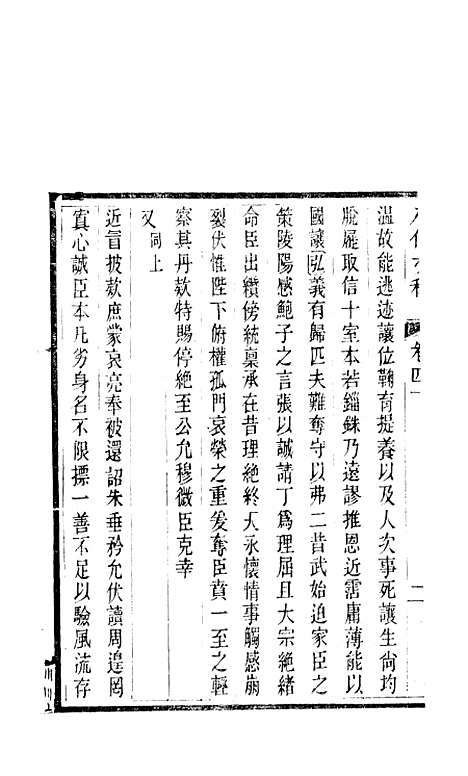 卷四
二
溫故能逃迹讓位鞠育提養以及人次事死讓生尙均
脫屣取信十室本若錙銖乃遠謬推恩近霑庸薄能以
國讓弘義有歸匹夫難奪守以弗二昔武始迫家臣之
策陵陽感鮑子之言張以誠請丁爲理屈且大宗絶緒
命臣出纘傍統稟承在昔理絶終天永懷情事觸感崩
裂伏惟陛下俯權孤門哀榮之重爰奪臣賁一至之輕
察其丹款特賜停絶至公允穆微臣克幸
又同上
近冒披款庶蒙哀亮奉被還詔未垂矜允伏讀周遑罔
寘心誠臣本凡劣身名不限摽一善不足以驗風流存